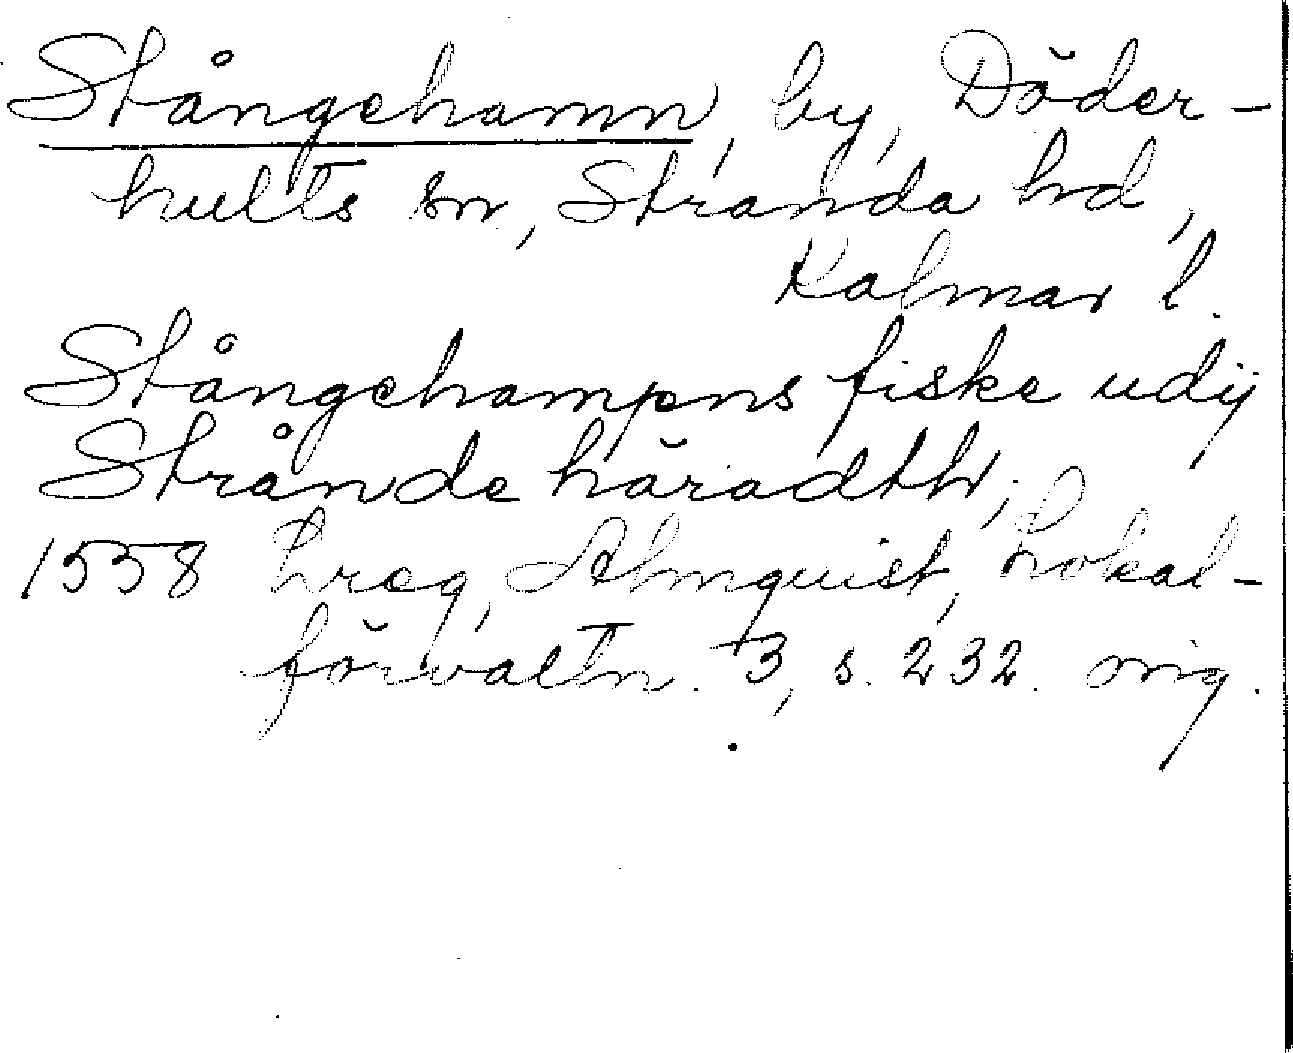 Stångehamn, by, Döder-
hults sn, Stranda hd,
Kalmar l.
Stångehampns fiske udij
Strånde häradth;
1558 hreg, Almquist, Lokal-
förvaltn. 3, s. 232. orig.